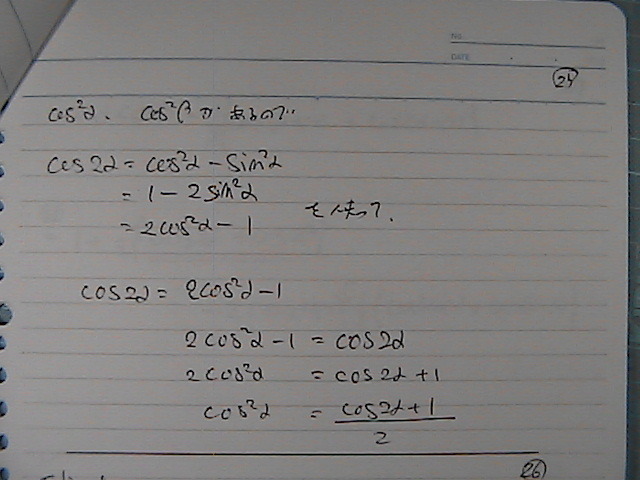 No.
DATE
㉔
cos²α、 cos²β があるので…
cos2α = cos²α - sin²α
= 1 - 2sin²α
= 2cos²α - 1 を使って、
cos2α = 2cos²α - 1
2cos²α - 1 = cos2α
2cos²α = cos2α + 1
cos²α = (cos2α + 1)/2
㉖